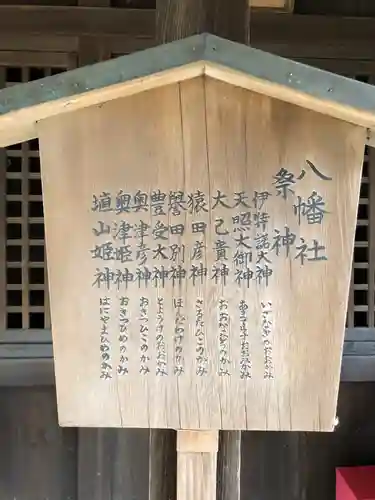 八幡社
祭神
伊弉諾大神
いざなぎのおおかみ
天照大御神
あまてらすおおみかみ
大己貴神
おおなむちのかみ
猿田彦神
さるたひこのかみ
誉田別神
ほんだわけのかみ
豊受大神
とようけのおおかみ
奥津彦神
おきつひこのかみ
奥津姫神
おきつひめのかみ
埴山姫神
はにやまひめのかみ